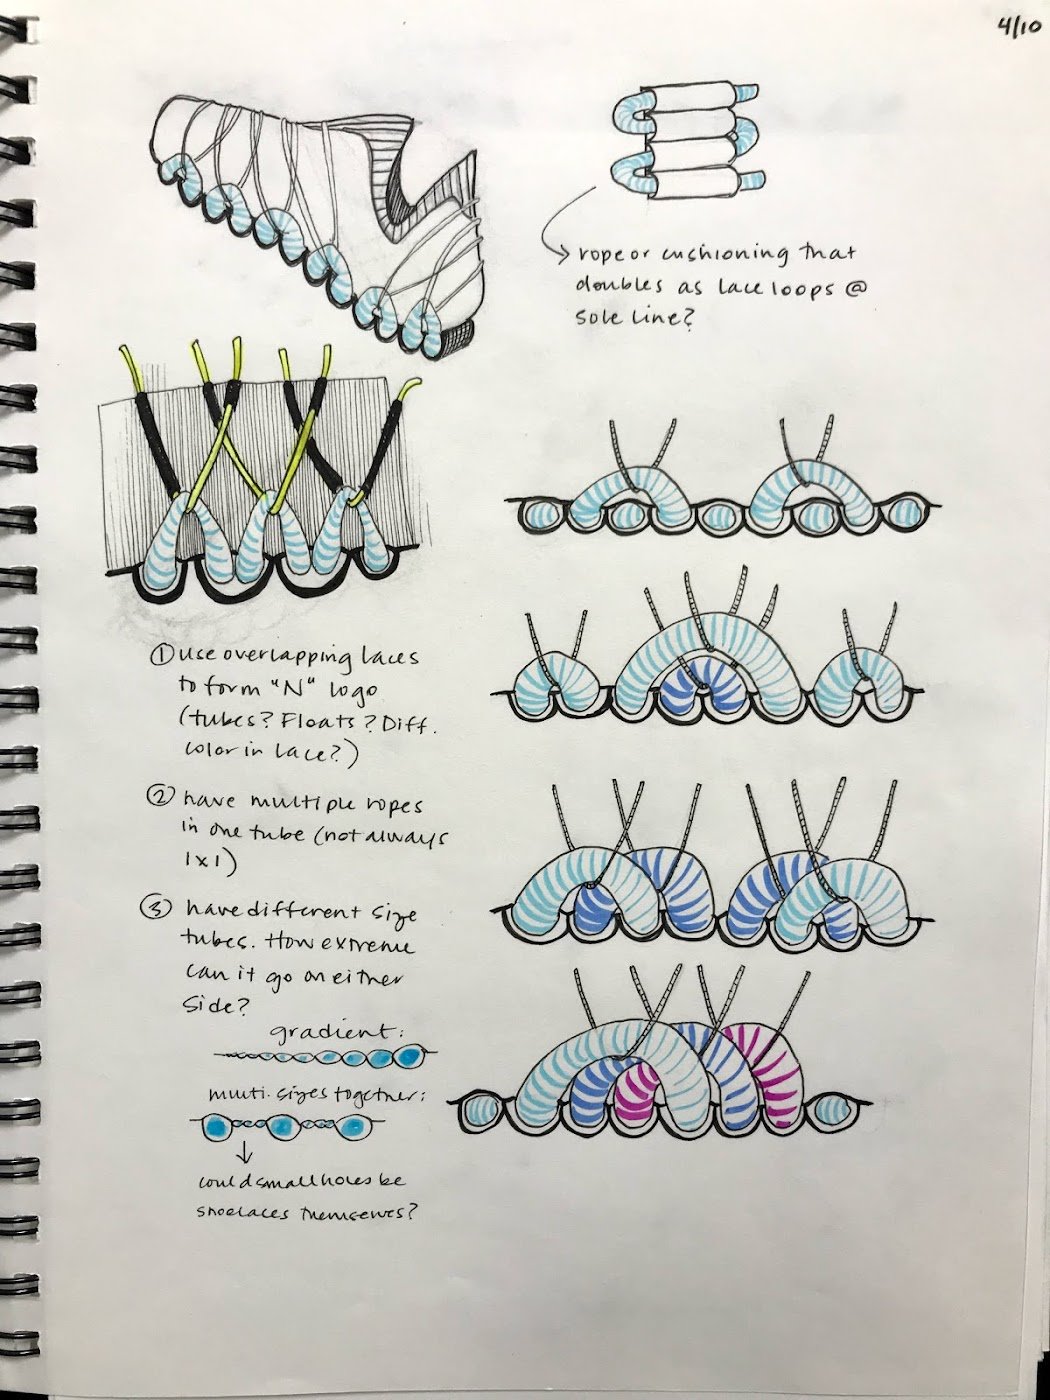 4/10
rope or cushioning that
doubles as lace loops @
sole line?
① use overlapping laces
to form "N" logo
(tubes? Floats? Diff.
color in lace?)
② have multiple ropes
in one tube (not always
1x1)
③ have different size
tubes. How extreme
can it go on either
side?
gradient:
multi-sizes together:
could small holes be
shoelaces themselves?